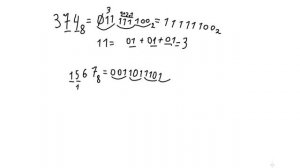 3
374₈ = 011 111 100₂ = 11111100₂
11= 01 + 01 + 01 = 3
1567₈ = 0011011101
1